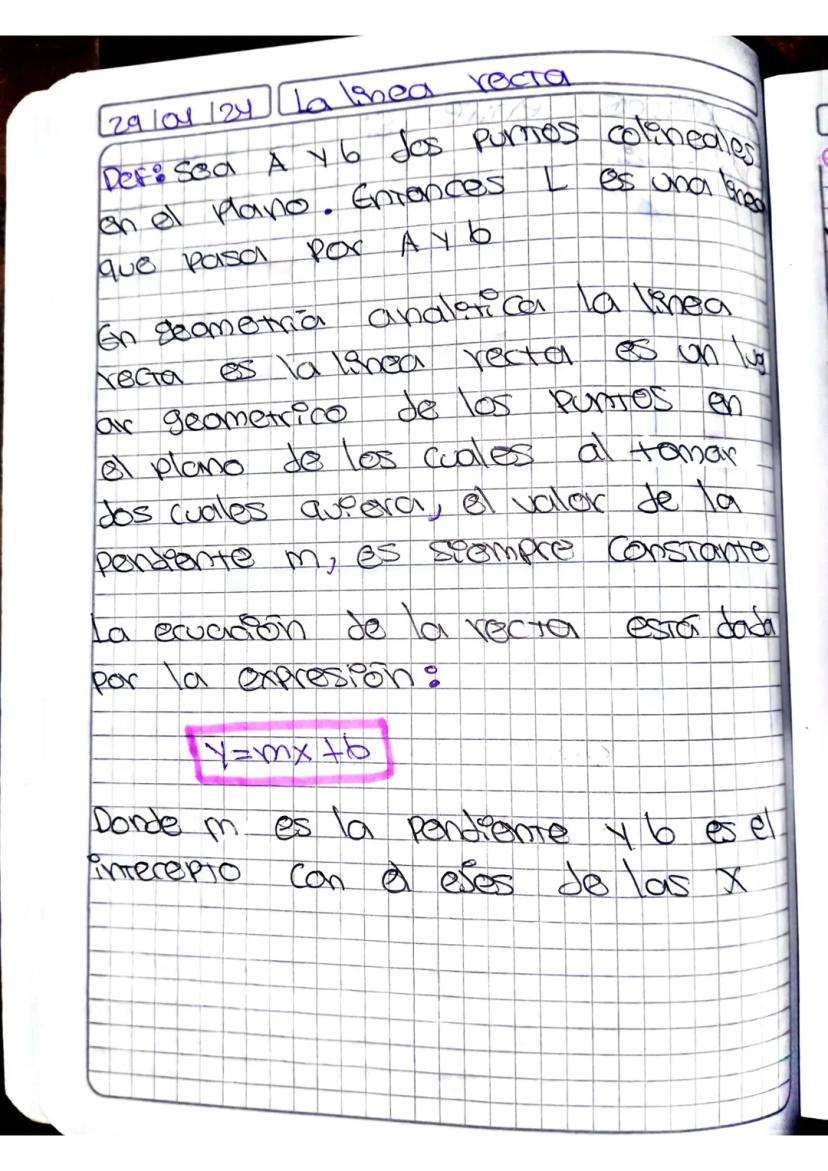 29/01/24 La linea recta
Def: Sea A y b dos puntos colineales
en el plano. Entonces L es una linea
que pasa por A y b
En geometría analitica la linea
recta es la linea recta es un lug
ar geometrico de los puntos en
el plano de los cuales al tomar
dos cuales quiera, el valor de la
pendiente m, es siempre constante
La ecuación de la recta está dada
por la expresión:
y=mx+b
Donde m es la pendiente y b es el
intercepto con el ejes de las x